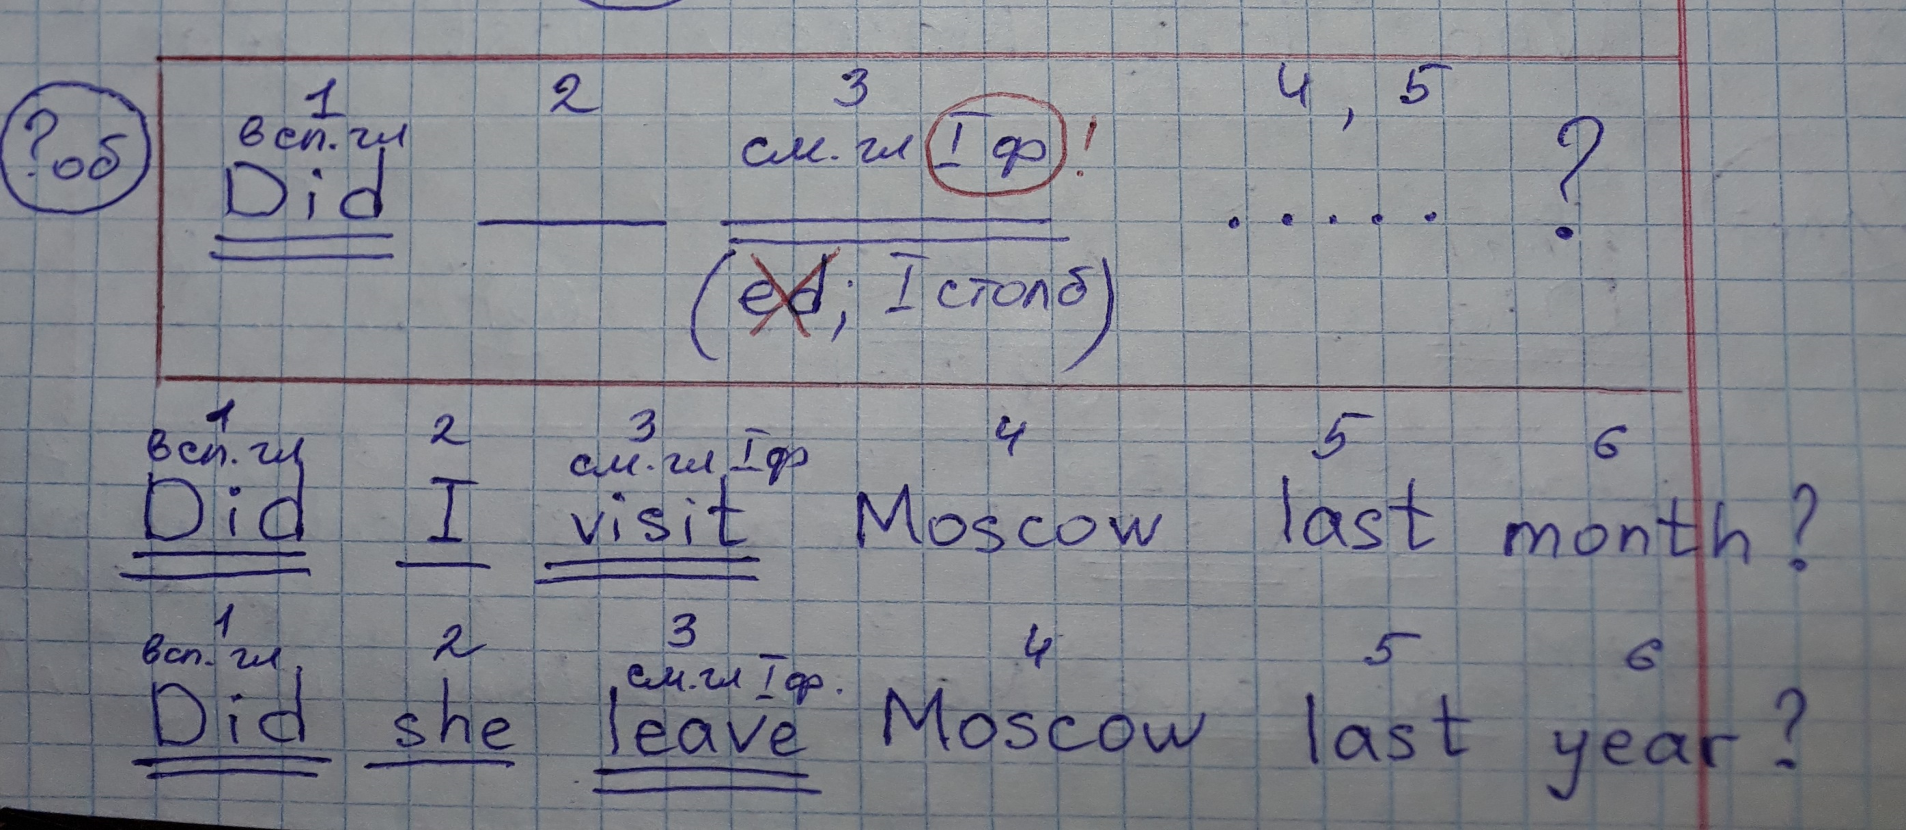 1 2 3 4, 5
?об всп. гл см. гл I ф !
Did ..... ?
(ed; I столб)
1 2 3 4 5 6
всп. гл см. гл I ф
Did I visit Moscow last month?
1 2 3 4 5 6
всп. гл. см. гл I ф.
Did she leave Moscow last year?